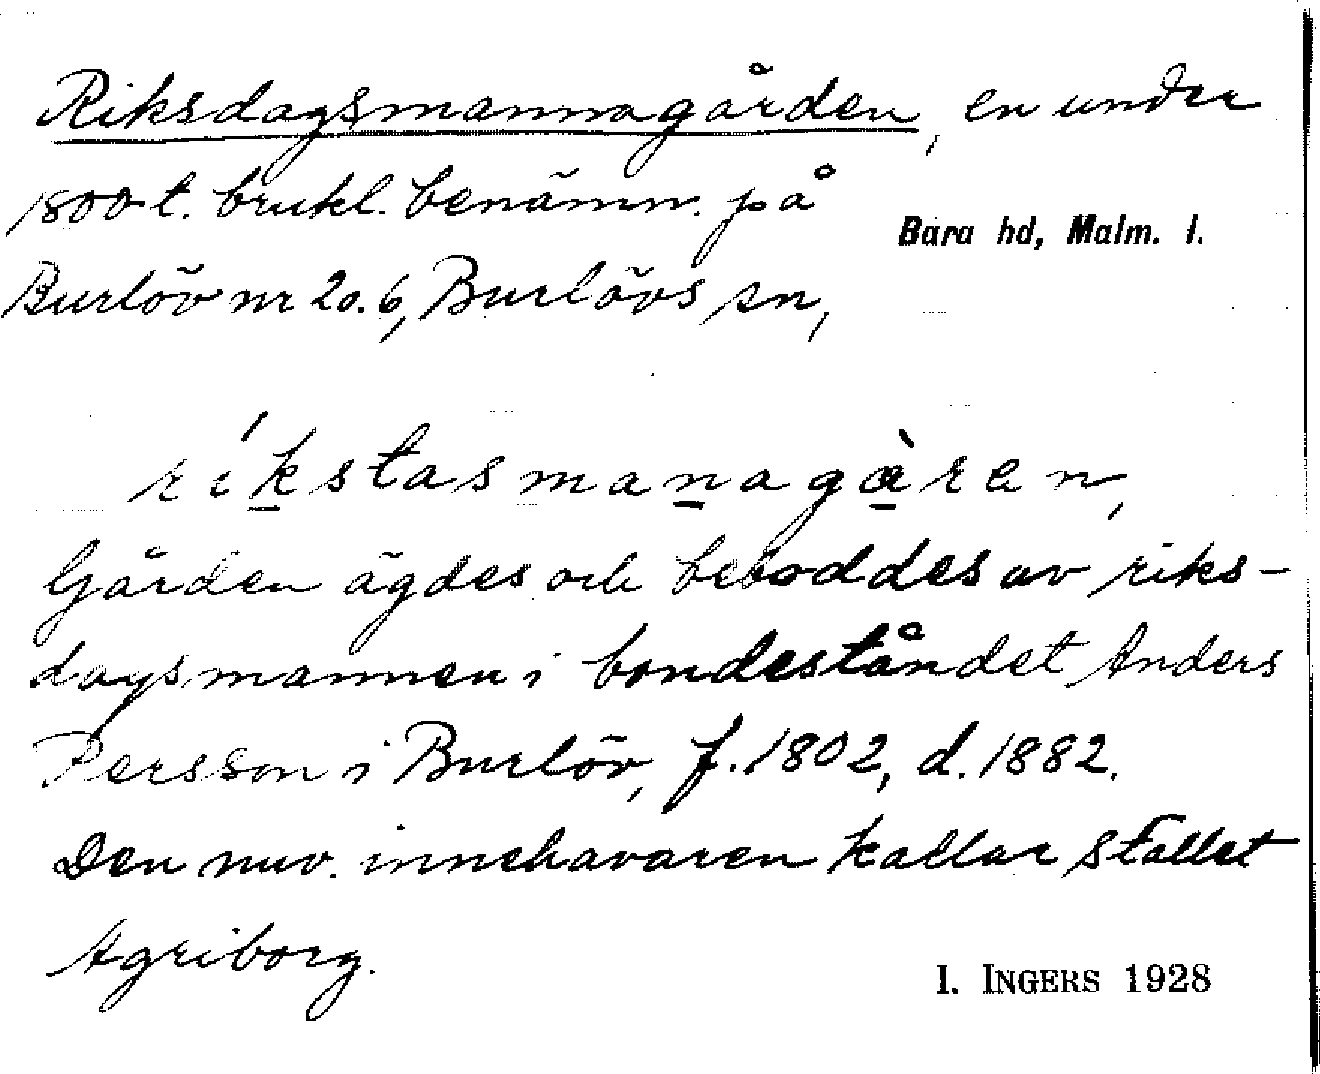 Riksdagsmannagården, en under
1800 t. brukl. benämn. på
Bara hd, Malm. l.
Burlöv nr 20.6, Burlövs sn,
ríkstasmanagàren,
Gården ägdes och beboddes av riks-
dagsmannen i bondeståndet Anders
Persson i Burlöv, f. 1802, d. 1882.
Den nuv. innehavaren kallar stället
Agriborg.
I. INGERS 1928